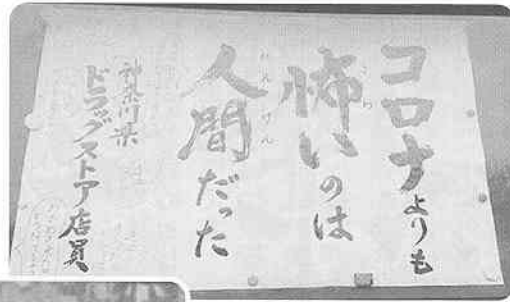 コロナよりも
怖いのは
人間だった
神奈川県
ドラッグストア店員